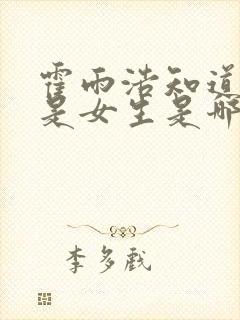 霍雨浩知道
是女生是哪
李多戲